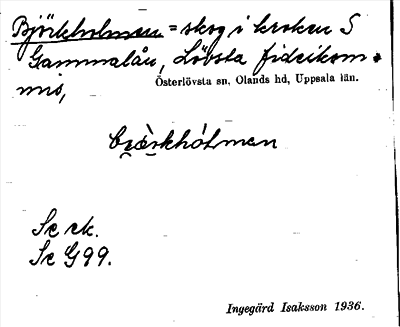 Björkholmen = skog i kroken S
Gammalån, Lövsta fideikom=
mis,
Österlövsta sn, Olands hd, Uppsala län.
Se ek.
Se G 99.
Ingegärd Isaksson 1936.